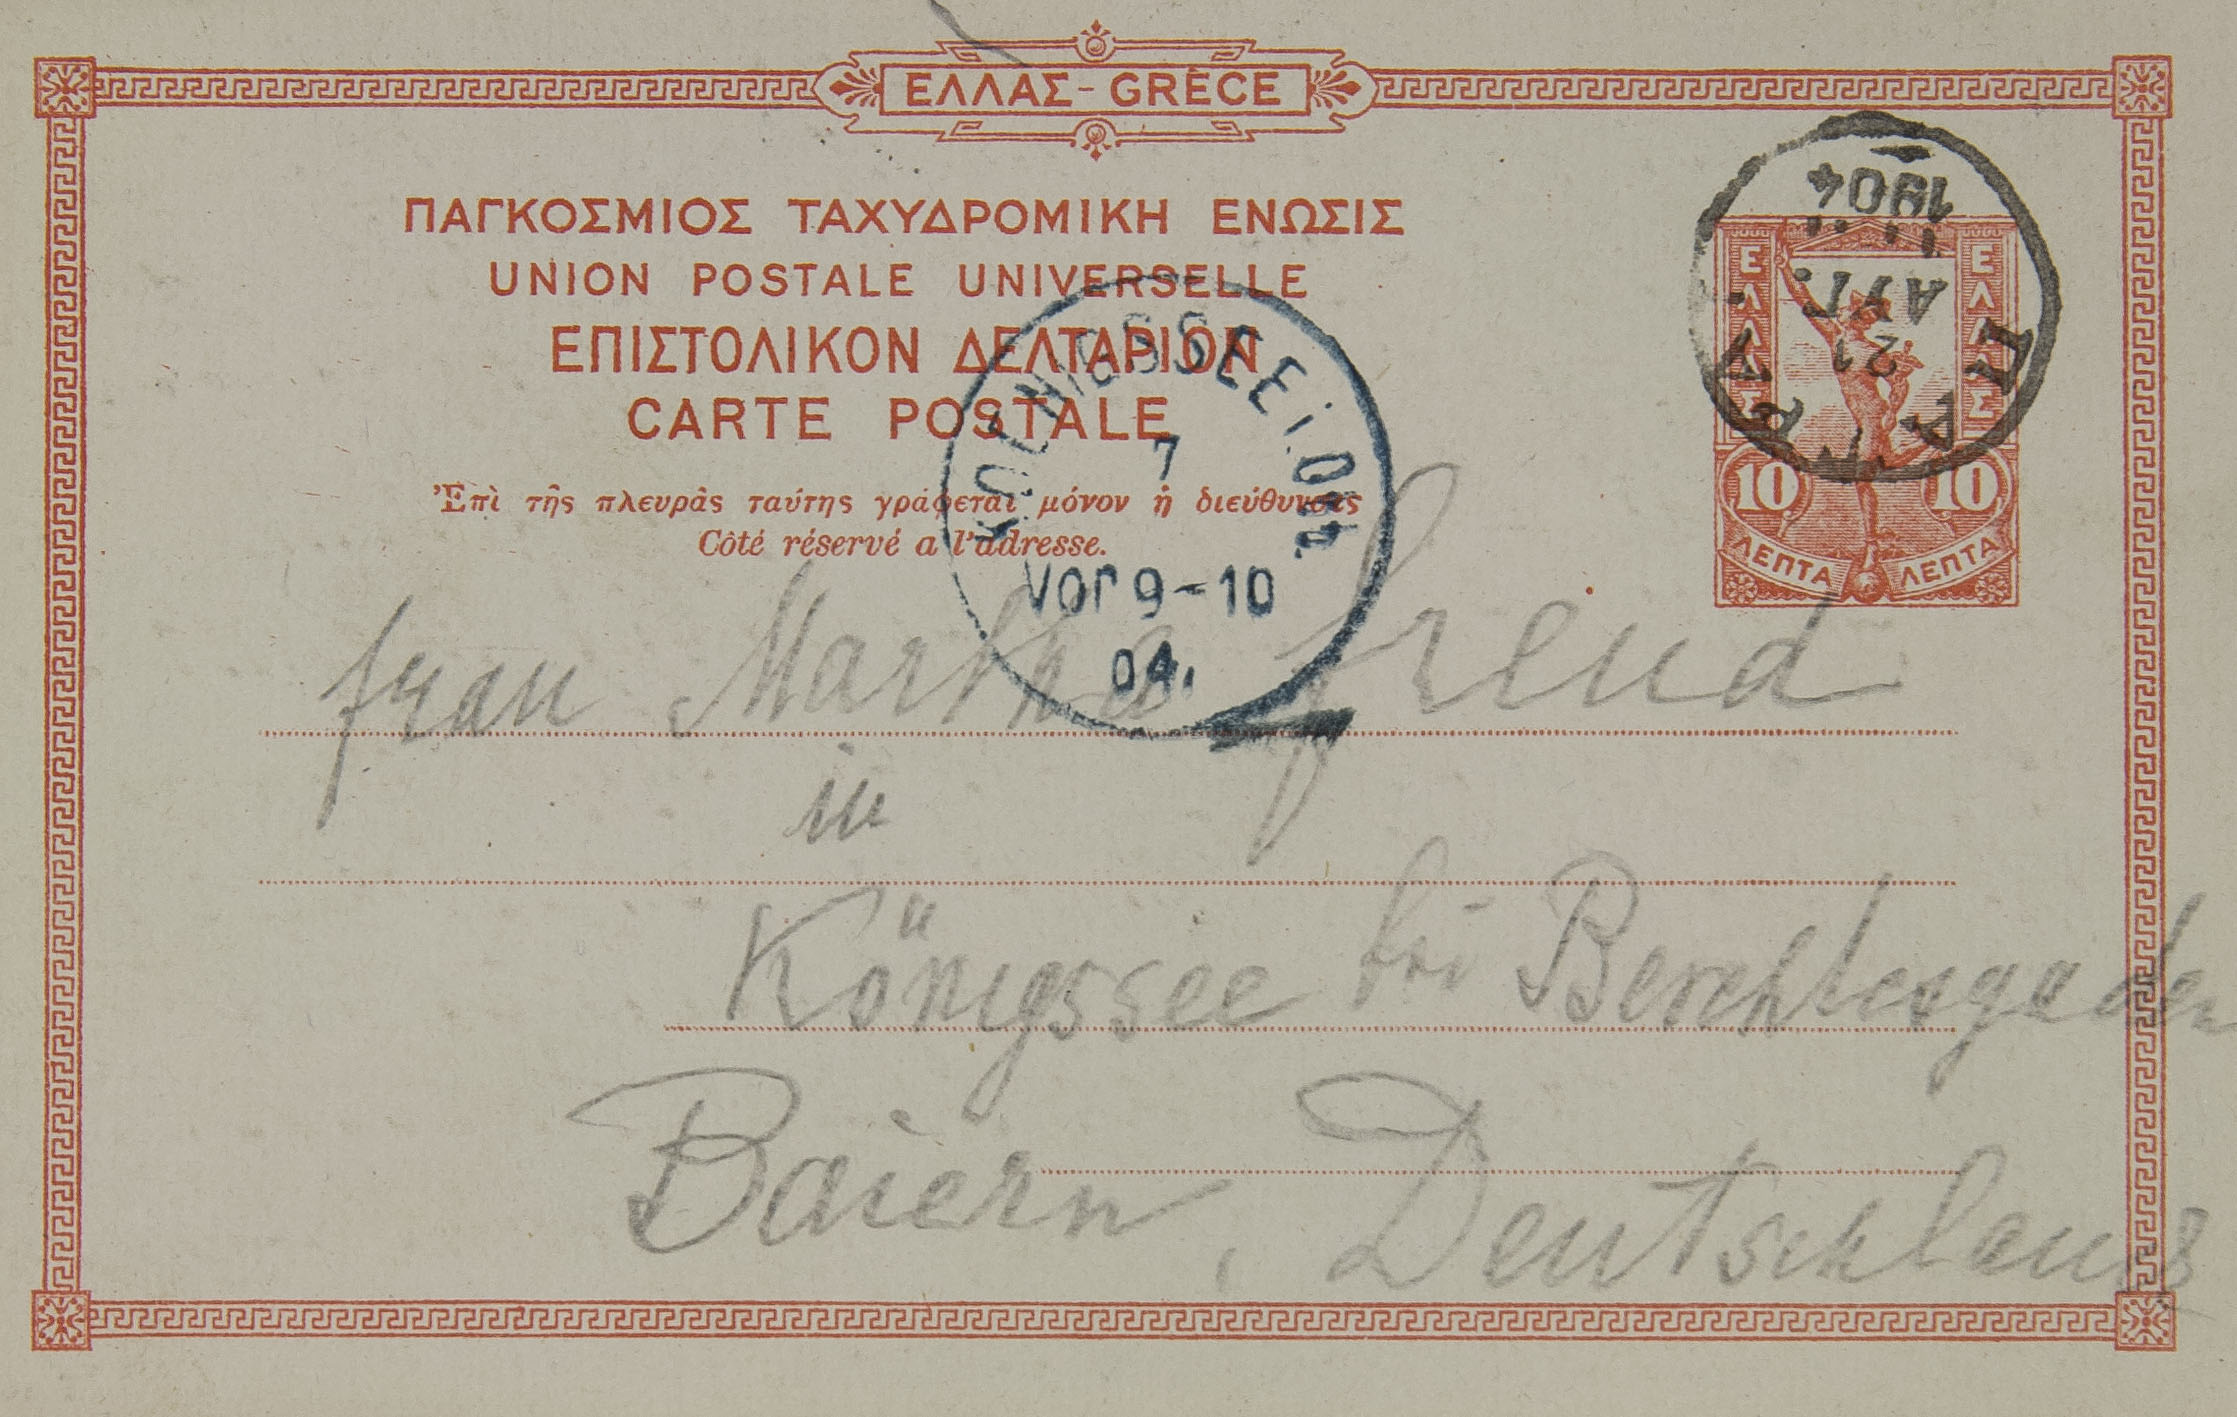 ΕΛΛΑΣ - GRÈCE
ΠΑΓΚΟΣΜΙΟΣ ΤΑΧΥΔΡΟΜΙΚΗ ΕΝΩΣΙΣ
UNION POSTALE UNIVERSELLE
ΕΠΙΣΤΟΛΙΚΟΝ ΔΕΛΤΑΡΙΟΝ
CARTE POSTALE
Ἐπὶ τῆς πλευρᾶς ταύτης γράφεται μόνον ἡ διεύθυνσις
Côté réservé a l'adresse.
ΕΛΛΑΣ ΕΛΛΑΣ
10 10
ΛΕΠΤΑ ΛΕΠΤΑ
ΠΑΤΡΑΙ
21
ΑΥΓ.
1904
KOENIGSSEE
7
Vor 9-10
04.
Frau Martha Freud
in
Königssee bei Berchtesgaden
Baiern, Deutschland